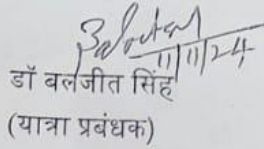 11/11/24
डॉ बलजीत सिंह
(यात्रा प्रबंधक)